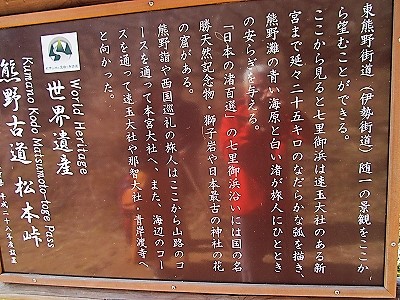 東熊野街道（伊勢街道）随一の景観をここか
ら望むことができる。
ここから見ると七里御浜は速玉大社のある新
宮まで延々二十五キロのなだらかな弧を描き、
熊野灘の青い海原と白い渚が旅人にひととき
の安らぎを与える。
「日本の渚百選」の七里御浜沿いには国の名
勝天然記念物、獅子岩や日本最古の神社の花
の窟がある。
熊野詣や西国巡礼の旅人はここから山路のコ
ースを通って本宮大社へ、また、海辺のコー
スを通って速玉大社や那智大社、青岸渡寺へ
と向かった。
World Heritage
世界遺産
Kumano Kodo Matsumototoge Pass
熊野古道 松本峠